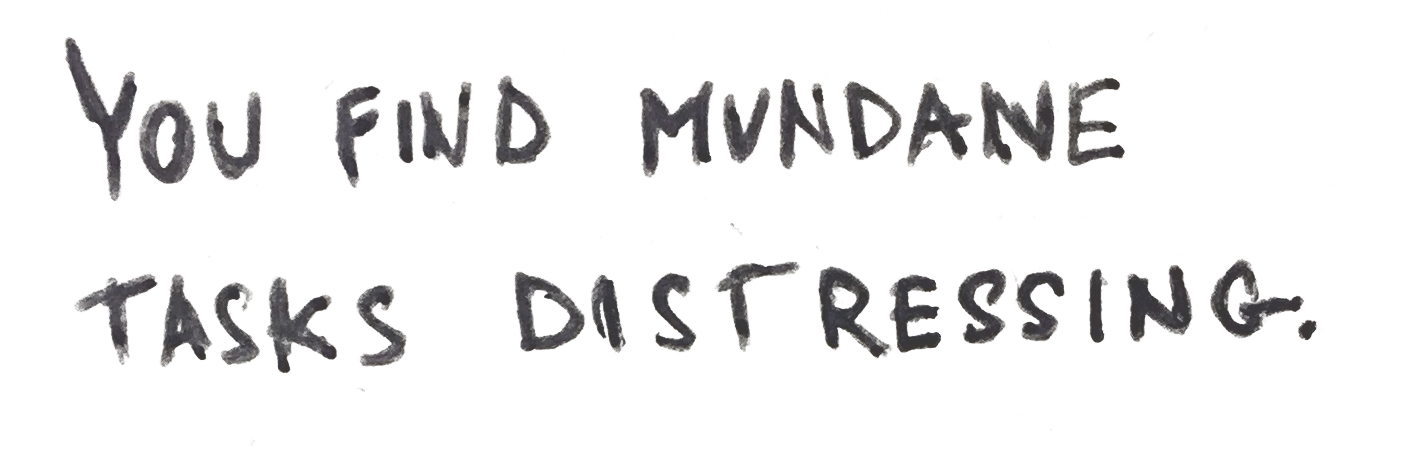 YOU FIND MUNDANE
TASKS DISTRESSING.